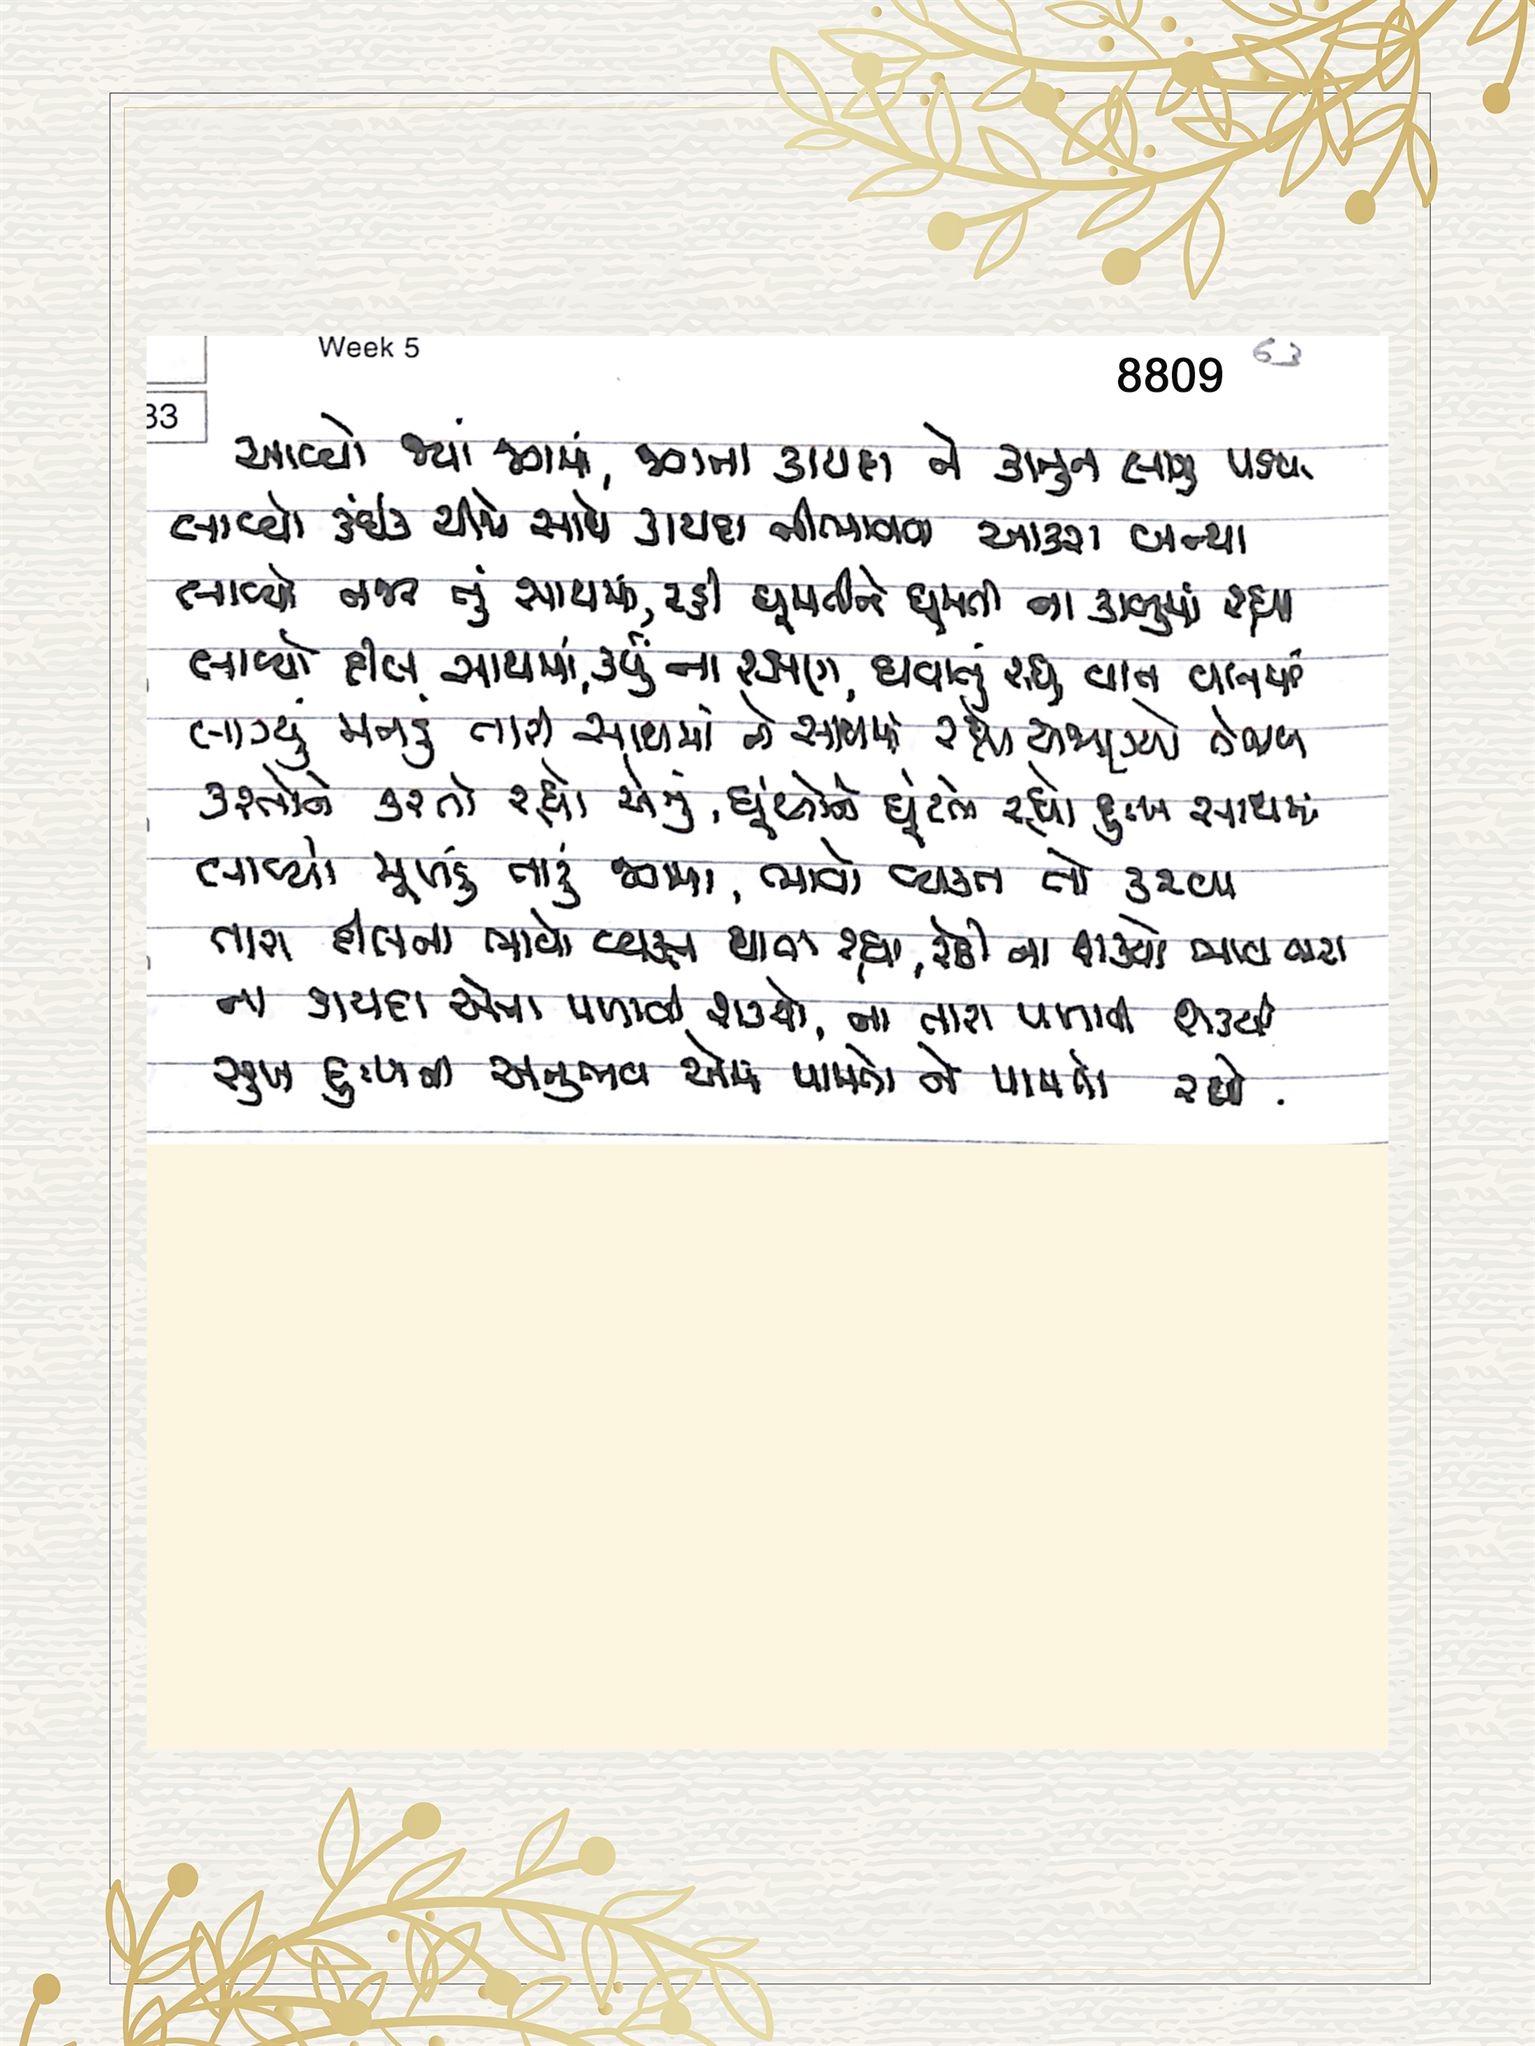 Week 5
8809 63
33
આવ્યો જ્યાં જગમાં, જગના કાયદા ને કાનુન લાગુ પડયા
લાવ્યો કંઈક ચીજો સાથે કાયદા નીભાવવા આકરા બન્યા
લાવ્યો નજર તું સાથમાં, રહી ઘૂમતીને ઘૂમતી ના કાબુમાં રહ્યા
લાવ્યો દીલ સાથમાં, કર્યું ના રક્ષણ, થવાનું રહ્યું
લાગ્યું મનડું તારી સાથમાં ને સાથમાં
કરતોને કરતો રહ્યો એનું, રહ્યો દુઃખ સાથમાં
લાવ્યો મૂખડું તારું જગમાં, ભાવો વ્યક્ત તો કરવા
તારા દીલના ભાવો વ્યક્ત થાતા રહ્યા, રોકી ના શક્યો ભાવ તારા
ના કાયદા એના પળાવી શક્યો, ના તારા પાળાવી શક્યો
સુખ દુઃખનો અનુભવ એમ પામતો ને પામતો રહ્યો.